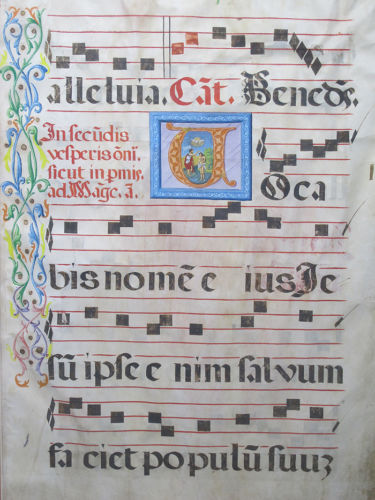 alleluia. Cāt. Benedē.
In secūdis
vesperis oñi.
sicut in pmis.
ad Mage. ā.
VOca
bis nomē e ius Je
sū ipse e nim salvum
fa ciet populū suuz